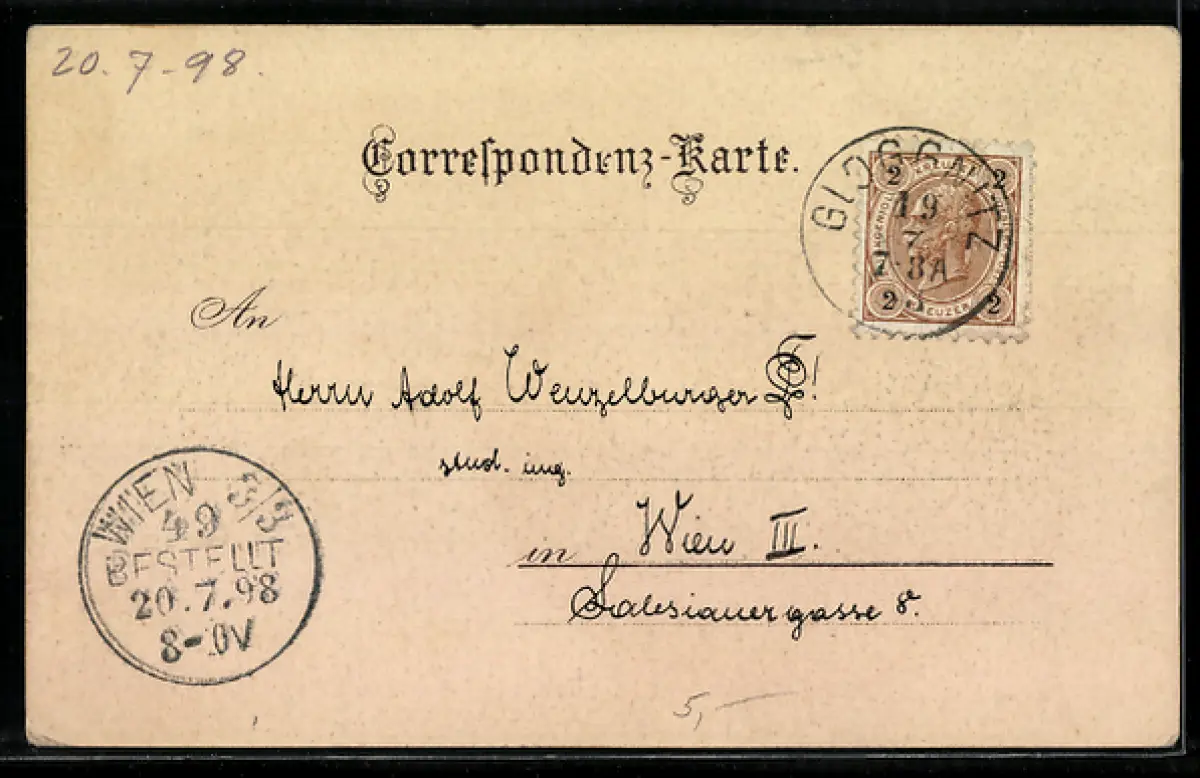 20.7-98.
Correspondenz-Karte.
GLOGGNITZ
19
7
7-8A
2 KREUZER 2
2 KREUZER 2
An
Herrn Adolf Wenzelburger
stud. ing.
in Wien III.
Salesianergasse 8.
WIEN 3/3
49
BESTELLT
20.7.98
8-9V
5,-